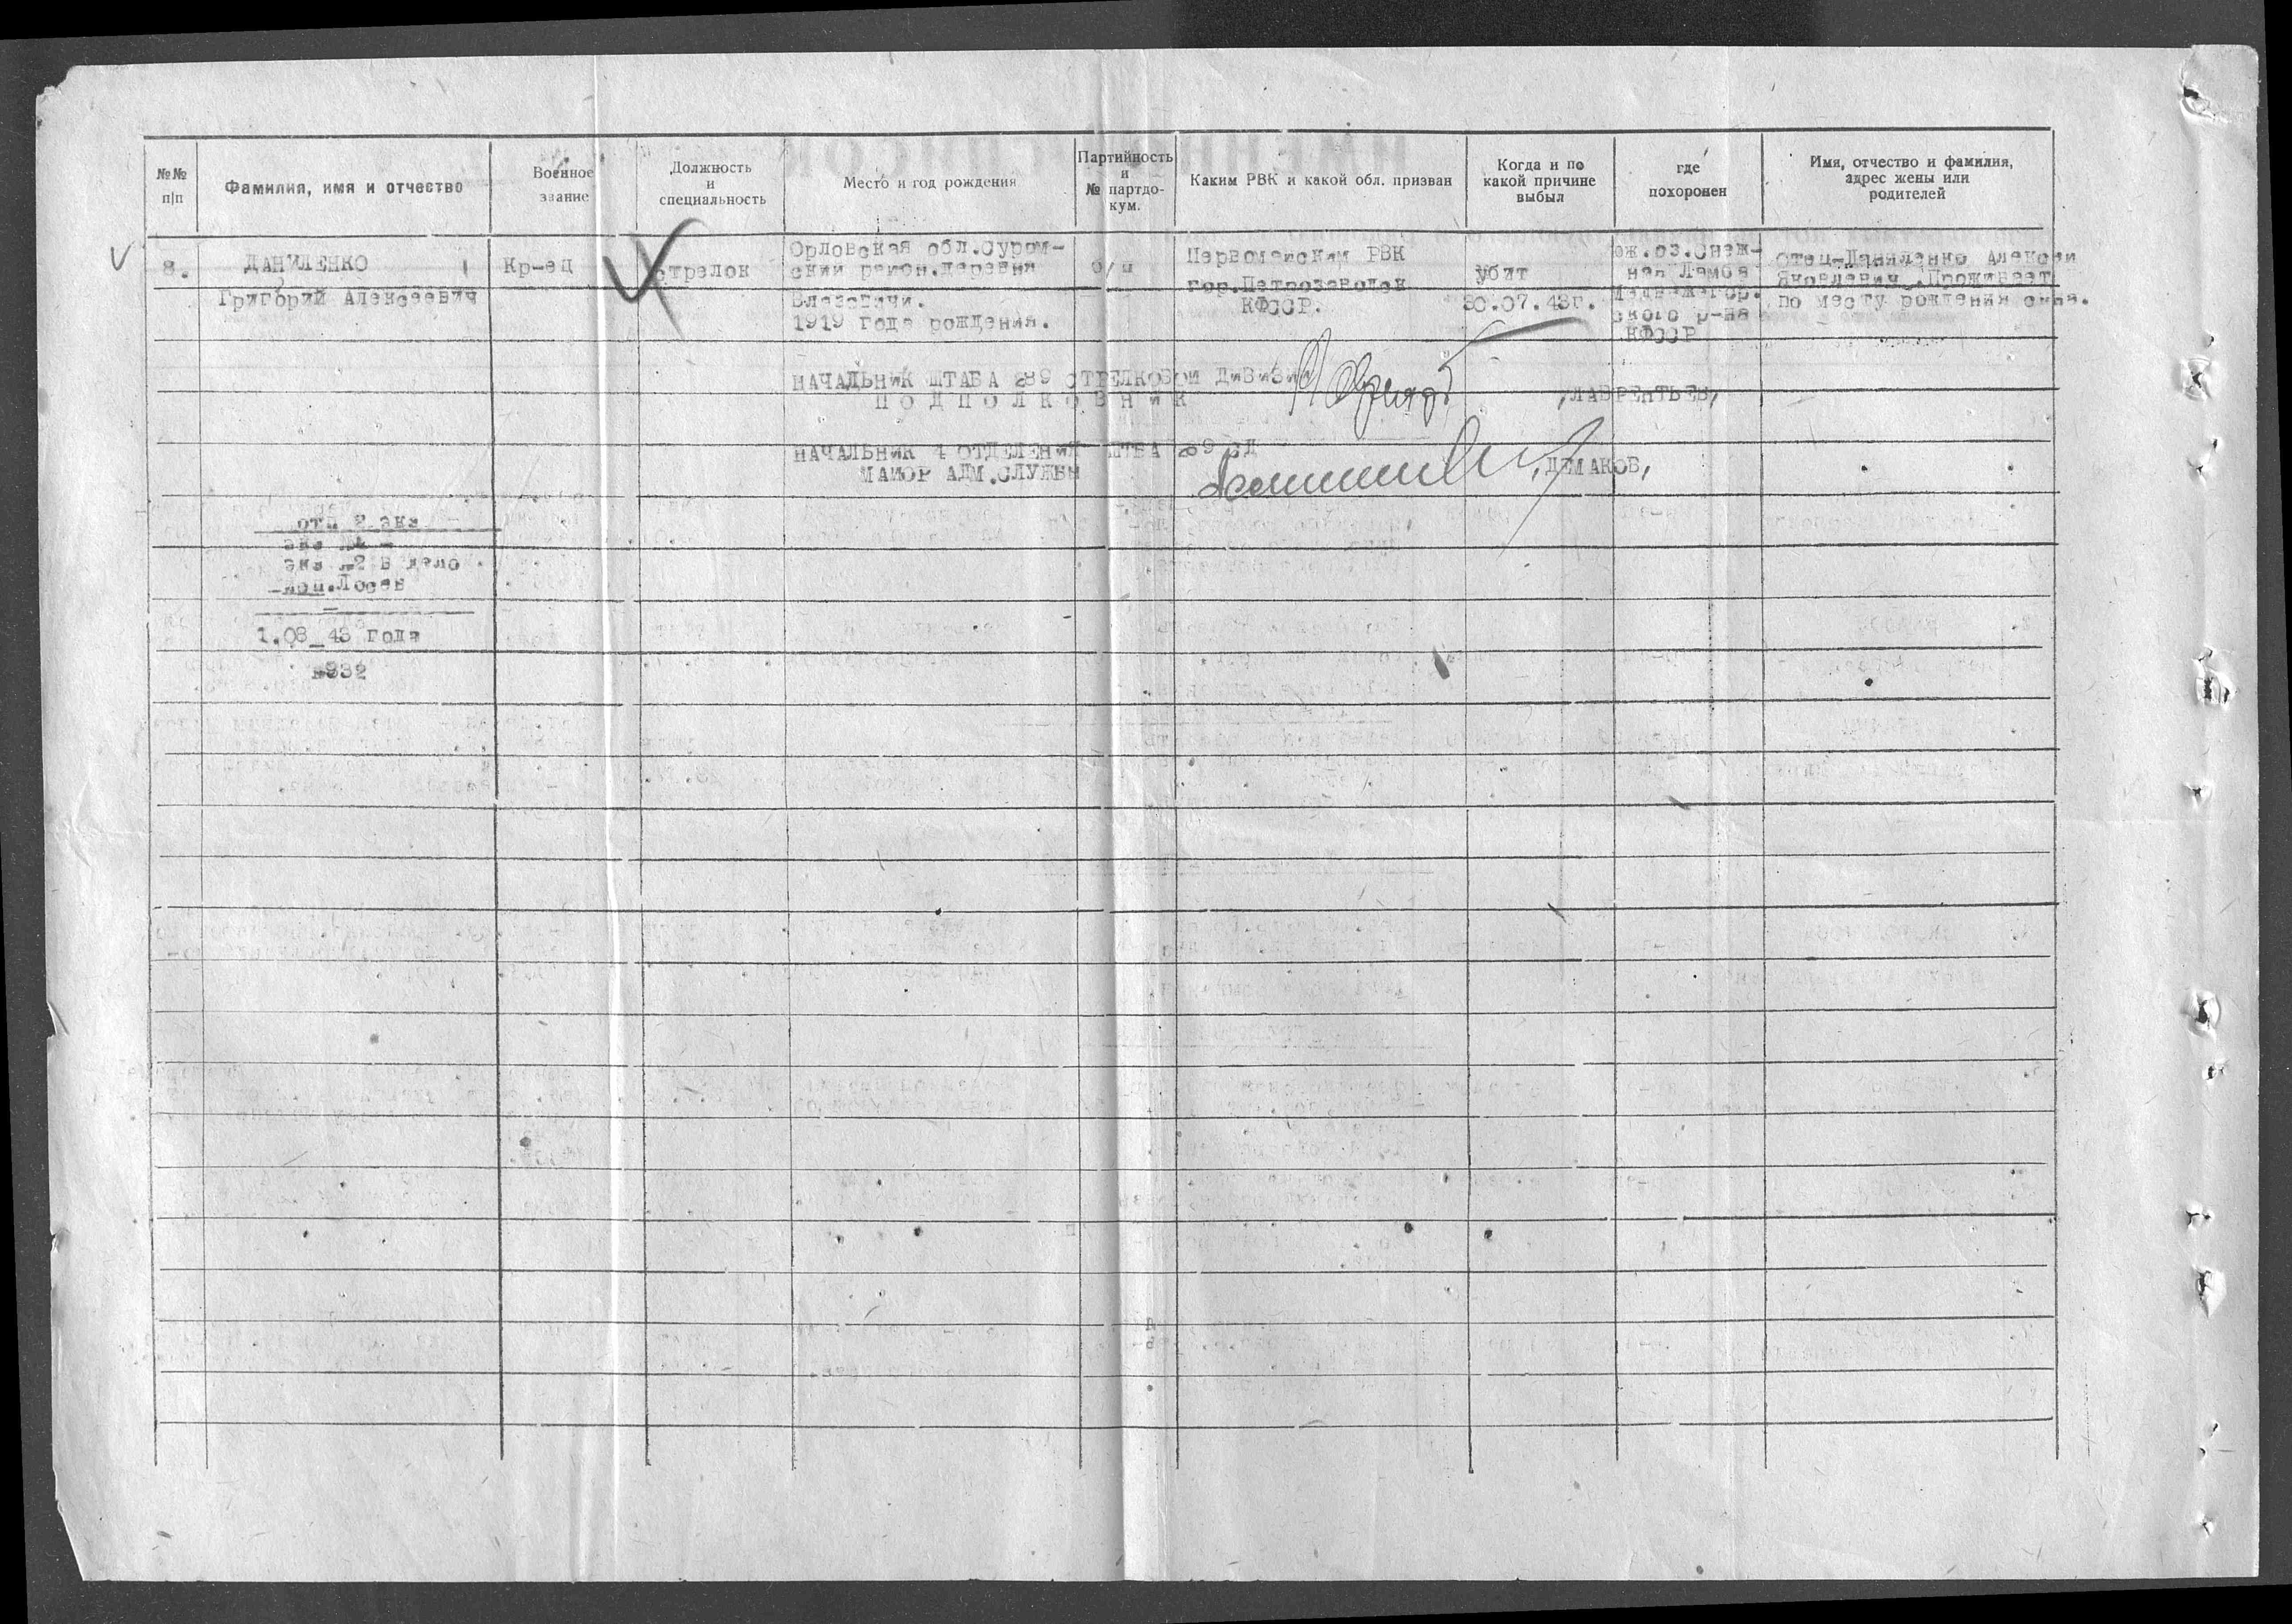 №№
п/п
Фамилия, имя и отчество
Военное
звание
Должность
и
специальность
Место и год рождения
Партийность
и
№ партдо-
кум.
Каким РВК и какой обл. призван
Когда и по
какой причине
выбыл
где
похоронен
Имя, отчество и фамилия,
адрес жены или
родителей
8.
ДАНИЛЕНКО
Григорий Алексеевич
Кр-ец
стрелок
Орловская обл.Сурам-
ский район.деревня
Влазовичи.
1919 года рождения.
б/п
Первомайским РВК
гор.Петрозаводск
КФССР.
убит
30.07.43г.
юж.оз.Снеж-
ная Ламба
Медвежегор.
ского р-на
КФССР
отец-Даниленко Алексей
Яковлевич.Проживает
по месту рождения сына.
НАЧАЛЬНИК ШТАБА 289 СТРЕЛКОВОЙ ДИВИЗИИ
ПОДПОЛКОВНИК
/ЛАВРЕНТЬЕВ/
НАЧАЛЬНИК 4 ОТДЕЛЕНИЯ ШТБА 289 СД
МАЙОР АДМ.СЛУЖБЫ
/ДЕМАКОВ/
отп 2 экз
экз №1 -
экз №2 в дело
исп.Лосев
1.08_43 года
№932